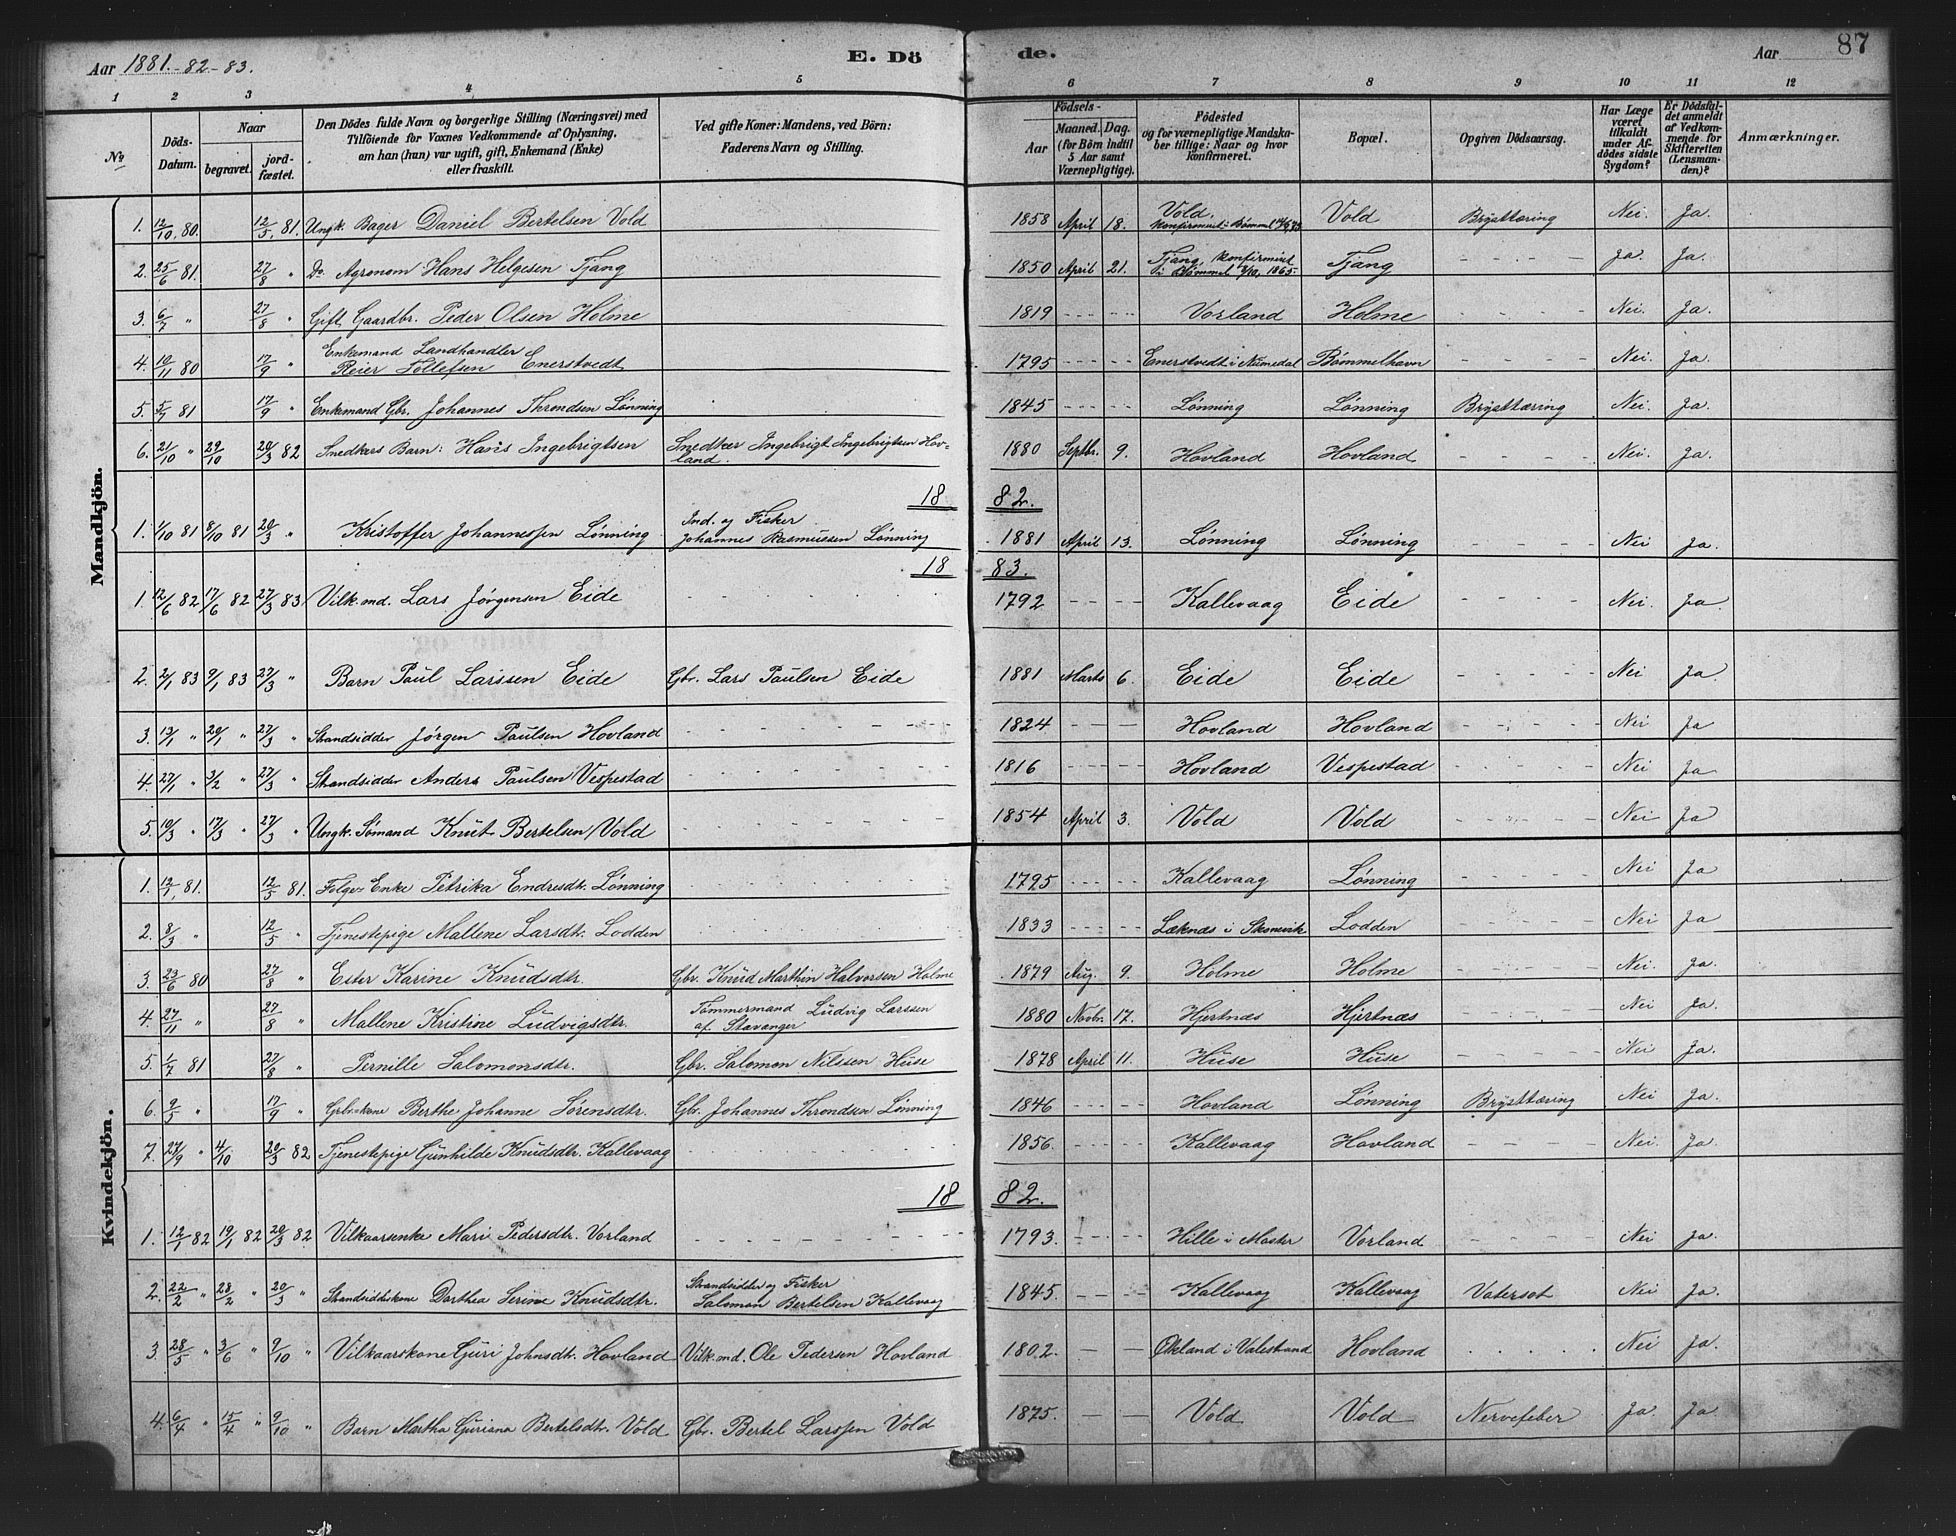 Aar 1881.-82-83. E. Dö de. Aar 87
1 2 3 4 5 6 7 8 9 10 11 12
No Döds-Datum. Naar begravet. jord-fæstet. Den Dödes fulde Navn og borgerlige Stilling (Næringsvei) med Tilföiende for Voxnes Vedkommende af Oplysning, om han (hun) var ugift, gift, Enkemand (Enke) eller fraskilt. Ved gifte Koner: Mandens, ved Börn: Faderens Navn og Stilling. Födsels- Aar Maaned. Dag. (for Börn indtil 5 Aar samt Værnepligtige). Födested og for værnepligtige Mandska-ber tillige: Naar og hvor konfirmeret. Bopæl. Opgiven Dödsaarsag. Har Læge været tilkaldt under Af-dödes sidste Sygdom? Er Dödsfal-det anmeldt af Vedkom-mende for Skifteretten (Lensman-den)? Anmærkninger.
Mandkjön.
1. 12/10. 80. 12/5. 81. Ungk. Bager Daniel Bertelsen Vold 1858 April 18. Vold. Konfirmeret i Bømmel Vold Brysttæring Nei Ja.
2. 25/6 81. 27/8 " Do. Agronom Hans Helgesen Tjang 1850 April 21. Tjang, konfirmeret i Bømmel 1/10. 1865. Tjang - - - - Ja. Ja.
3. 6/7 " 27/8 " Gift Gaardbr. Peder Olsen Holme 1819 - - - - Vorland Holme Nei. Ja.
4. 19/11 80 17/9 " Enkemand Landhandler Reier Tollefsen Enerstvedt 1795 - - - - Enerstvedt i Numedal Bømmelhavn - - - - Nei. Ja.
5. 5/7 81 17/9 " Enkemand Gbr. Johannes Throndsen Lønning 1845 - - - - Lønning Lønning Brysttæring Nei. Ja.
6. 21/10 " 29/10 20/3 82 Snedkers Barn: Hans Ingebrigtsen Snedker Ingebrigt Ingebrigtsen Hov-land. 1880 Septbr. 9. Hovland Hovland - - - - Nei. Ja.
18 82.
1. 1/10 81 8/10 81 20/3 " Kristoffer Johannessen Lønning Ind. og Fisker Johannes Rasmussen Lønning 1881 April 13. Lønning Lønning - - - - Nei Ja.
18 83.
1. 12/6 82 17/6 82 27/3 83 Vilk.md. Lars Jørgensen Eide 1792 - - - - Kallevaag Eide - - - - Nei. Ja.
2. 2/1 83 9/1 83 27/3 " Barn Paul Larssen Eide Gbr. Lars Paulsen Eide 1881 Marts 6. Eide Eide - - - - Nei Ja.
3. 13/1 " 20/1 " 27/3 " Strandsidder Jørgen Paulsen Hovland - - - - 1824 - - - Hovland Hovland - - - - Nei Ja
4. 27/1 " 3/2 " 27/3 " Strandsidder Anders Paulsen Vespestad - - - - 1816 Hovland Vespestad - - - - Nei Ja
5. 10/3 " 17/3 " 27/3 " Ungk. Sømand Knut Bertelsen Vold - - - - 1854 April 3. Vold Vold - - - - Nei Ja
Kvindekjön.
1. 12/1, 81. 12/5 81. Enke Petrika Endresdtr. Lønning - - - - 1795 - - - - Kallevaag Lønning Nei Ja
2. 8/3 " 12/5 " Tjenestepige Mallene Larsdtr. Lodden 1833 - - - - Læknæs i Skonevik Lodden - - - - Nei Ja
3. 23/6 80 27/8 " Ester Karine Knudsdtr. Gbr. Knud Marthin Halvorsen Holme 1879 Aug. 9. Holme Holme - - - - Nei. Ja.
4. 27/11 " 27/8 " Mallene Kristine Ludvigsdtr. Tømmermand Ludvig Larssen af Stavanger 1880 Novbr. 17. Hjertnæs Hjertnæs - - - - Nei Ja.
5. 1/7 81 27/8 " Pernille Salomonsdtr. Gbr. Salomon Nilssen Huse 1878 April 11. Huse Huse - - - - Nei Ja.
6. 9/5 " 17/9 " Grbr.kone Berthe Johanne Sørensdtr. Gbr. Johannes Throndsen Lønning 1846 - - - - Hovland Lønning Brysttæring Nei Ja.
7. 27/9 " 4/10 20/3 82 Tjenestepige Gunhilde Knudsdtr. Kallevaag - - - - 1856. - - - - Kallevaag Hovland - - - - Nei. Ja.
18 82.
1. 12/1 82 19/1 82 20/3 82 Vilkaarsenke Mari Pedersdtr. Vorland - - - - 1793. - - - - Hille i Moster Vorland Nei Ja.
2. 22/2 " 28/2 " 20/3 " Strandsidderkone Dorthea Serine Knudsdtr. Strandsidder og Fisker Salomon Bertelsen Kallevaag 1845. - - - - Kallevaag Kallevaag Vatersot Nei Ja.
3. 28/5 " 3/6 " 9/10 " Vilkaarskone Guri Johnsdtr. Hovland Vilk.md. Ole Pedersen Hovland 1802. - - Økland i Valestrand Hovland . . . . . Nei Ja.
4. 6/4 " 15/4 " 9/10 " Barn Martha Guriana Bertelsdtr. Vold Gbr. Bertel Larssen Vold 1875. - - Vold Vold Nervefeber Ja. Ja